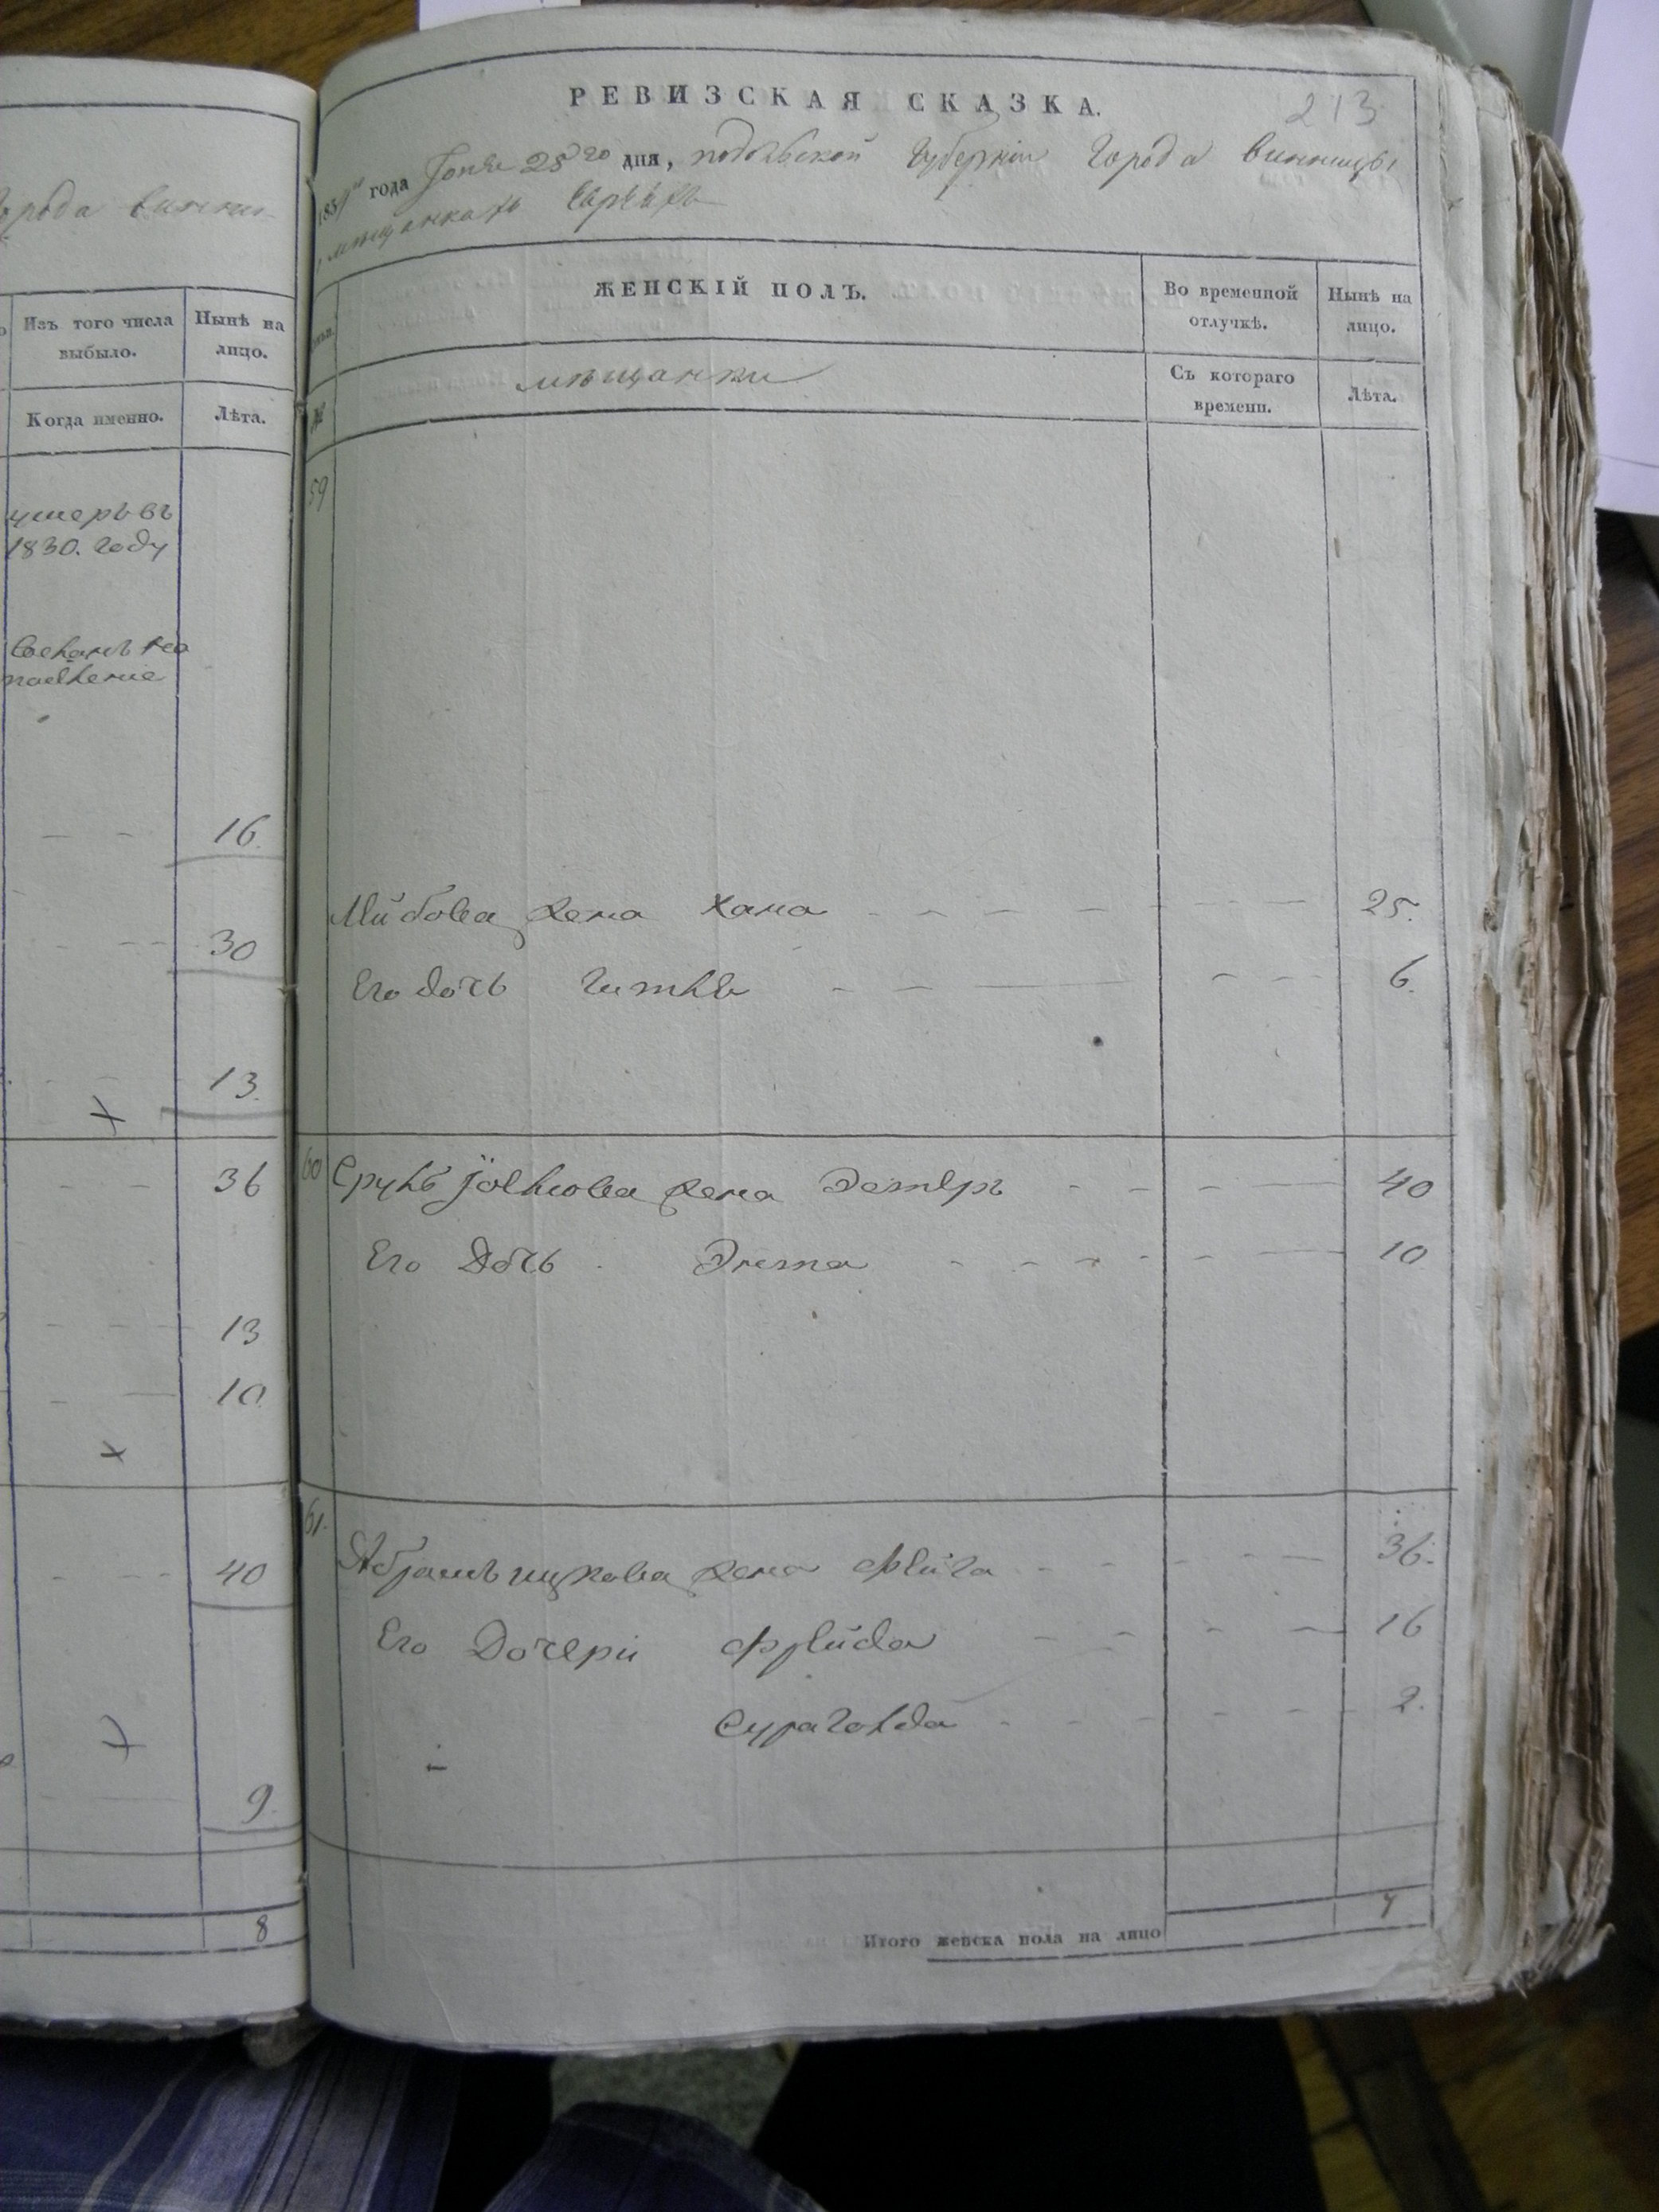 города винни-
Изъ того числа выбыло.
Нынѣ на лицо.
Когда именно.
Лѣта.
умеръ въ
1830. году
16.
30
13.
36
13
10
40
9.
8
213
РЕВИЗСКАЯ СКАЗКА.
года 25го дня, подольской Губерніи Города винницы
мѣщанкахъ Евреяхъ
ЖЕНСКІЙ ПОЛЪ.
Во временной отлучкѣ.
Нынѣ на лицо.
мѣщанки
Съ котораго времени.
Лѣта.
№
59
жена Хана 25.
Его дочь Гитля 6.
60 Сруль жена Эстеръ 40
Его Дочь 10
61. Абрамъ жена Фейга 36.
Его Дочери Фрейда 16
Сураголда 2.
Итого женска пола на лицо 7